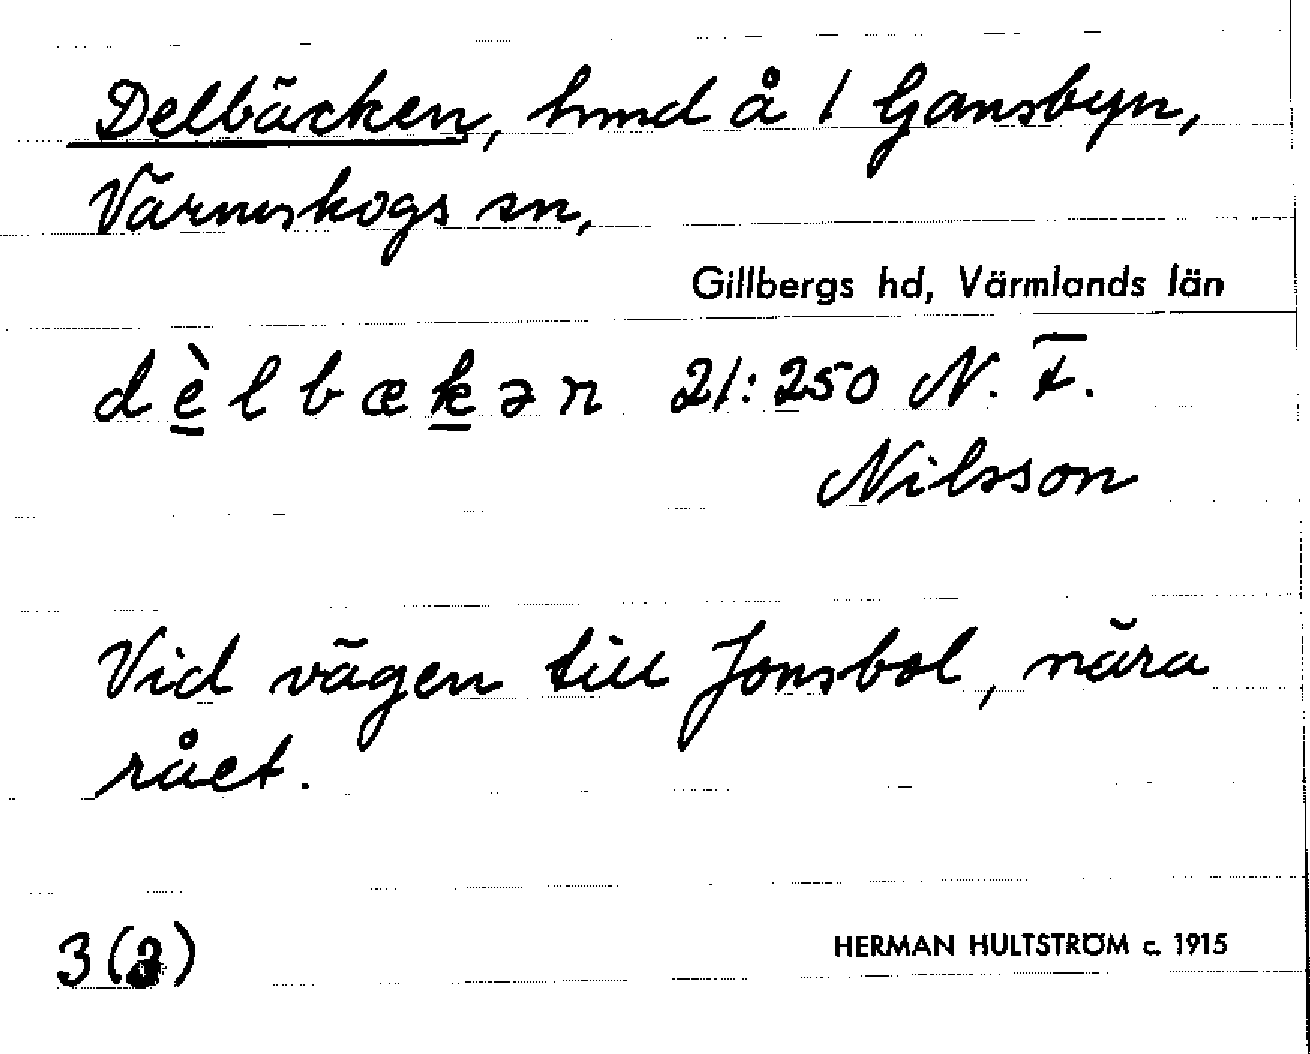 Delbäcken, hmd å 1 Gansbyn,
Värmskogs sn,
Gillbergs hd, Värmlands län
dèlbækən 21:250 N. F.
Nilsson
Vid vägen till Jonsbol, nära
rået.
3(3)
HERMAN HULTSTRÖM c. 1915